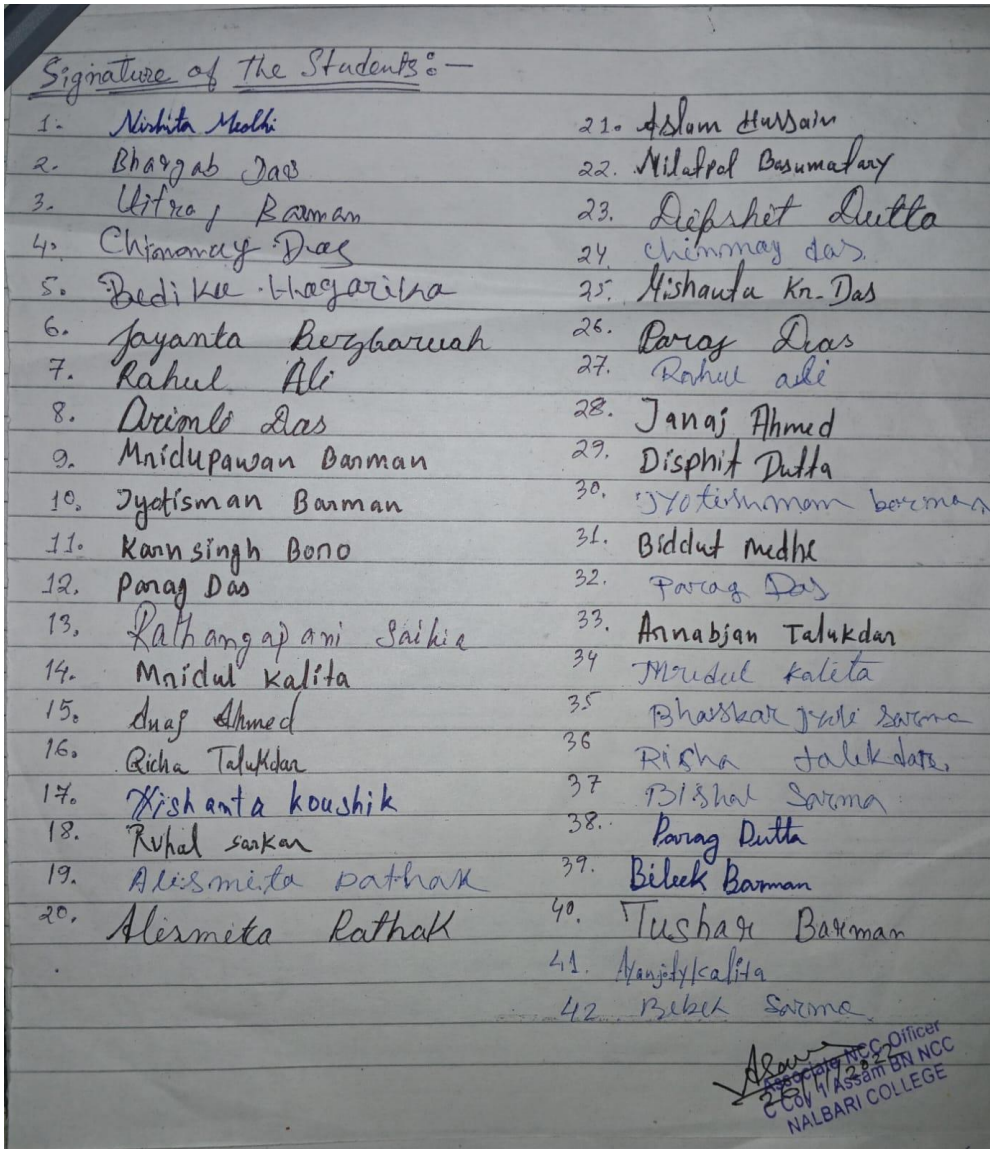 Signature of the Students:-
1. Nishita Medhi
2. Bhargab Das
3. Uitraj Barman
4. Chinmay Das
5. Bedika Hagarika
6. Jayanta Bezbaruah
7. Rahul Ali
8. Drimli Das
9. Mridupawan Barman
10. Jyotisman Barman
11. Karn singh Boro
12. Parag Das
13, Rathangapani Saikia
14. Mridul Kalita
15. Anaj Ahmed
16. Richa Talukdar
17. Nishanta koushik
18. Ruhal sarkar
19. Alismita pathak
20. Alismita Pathak
21. Aslam Hussain
22. Nilatpal Basumatary
23. Dipshit Dutta
24 chinmay das.
25. Nishanta Kr. Das
26. Parag Das
27. Rahul ali
28. Janaj Ahmed
29. Disphit Dutta
30. Jyotishmam barman
31. Biddut medhi
32. Parag Das
33. Arnabjan Talukdar
34 Mridul Kalita
35 Bhaskar jyoti Sarma
36 Risha talukdar.
37 Bishal Sarma
38. Parag Dutta
39. Bibek Barman
40. Tushar Barman
41. Nyanjoty kalita
42. Bibek Sarma
Associate NCC Officer
C Coy 1 Assam BN NCC
NALBARI COLLEGE